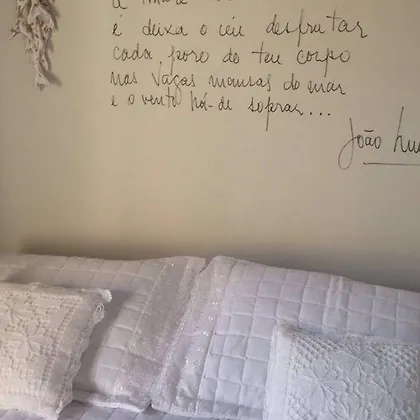 é deixa o céu desfrutar
cada poro do teu corpo
nas vagas mansas do mar
e o vento há-de soprar...
João